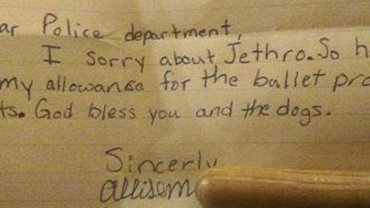 ar Police department,
I sorry about Jethro. So h
my allowance for the ballet pro
ts. God bless you and the dogs.
Sincerly
allison